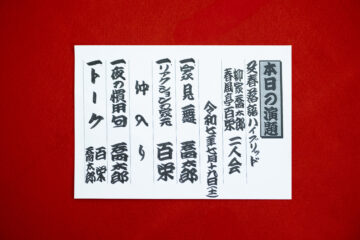 本日の演題
文春落語ハイブリッド
柳家喬太郎
春風亭百栄
二人会
令和七年七月十九日(土)
一家見舞 喬太郎
一リアクション家元 百栄
仲入り
一夜の慣用句 喬太郎
一トーク 百栄
喬太郎